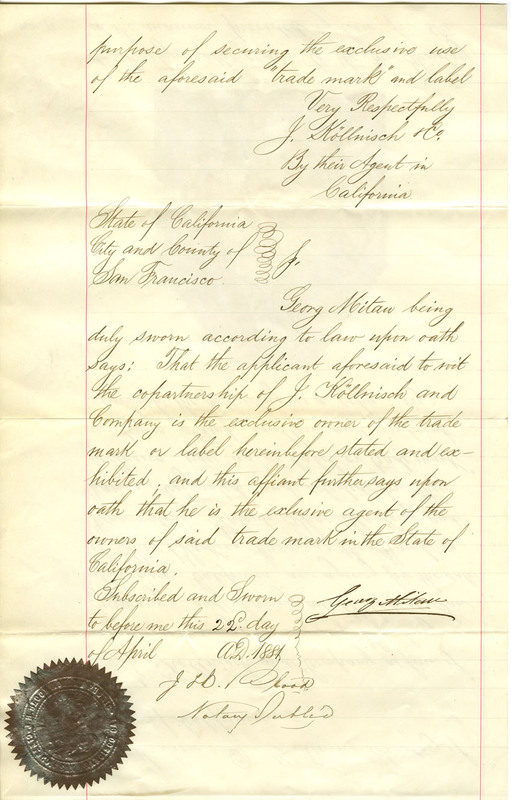 purpose of securing the exclusive use
of the aforesaid "trade mark" and label
Very Respectfully
J. Köllnisch & Co.
By their Agent in
California
State of California
City and County of
San Francisco.
Georg Mitau being
duly sworn according to law upon oath
says: That the applicant aforesaid to wit
the copartnership of J. Köllnisch and
Company is the exclusive owner of the trade
mark or label hereinbefore stated and ex-
hibited, and this affiant further says upon
oath that he is the exclusive agent of the
owners of said trade mark in the State of
California.
Subscribed and Sworn
Georg Mitau
to before me this 22d. day
of April A.D. 1881
J. H. Blood
Notary Public